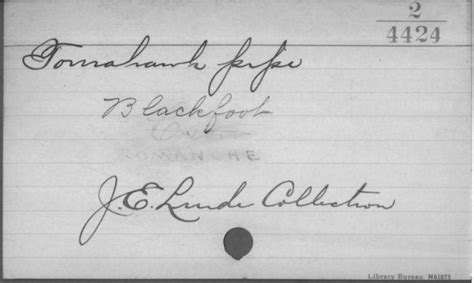 2
4424
Tomahawk pipe
Blackfoot
COMANCHE
J.E. Linde Collection
Library Bureau